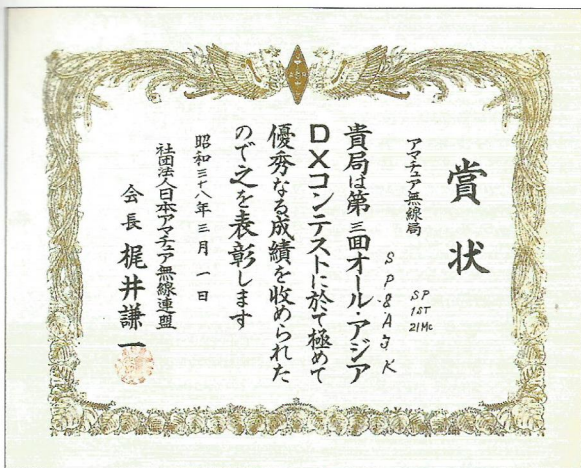 賞状
SP
1ST
21Mc
アマチュア無線局
SP8AJK
貴局は第三回オール・アジア
DXコンテストに於て極めて
優秀なる成績を收められた
ので之を表彰します
昭和三十八年三月一日
社団法人日本アマチュア無線連盟
会長 梶井謙一